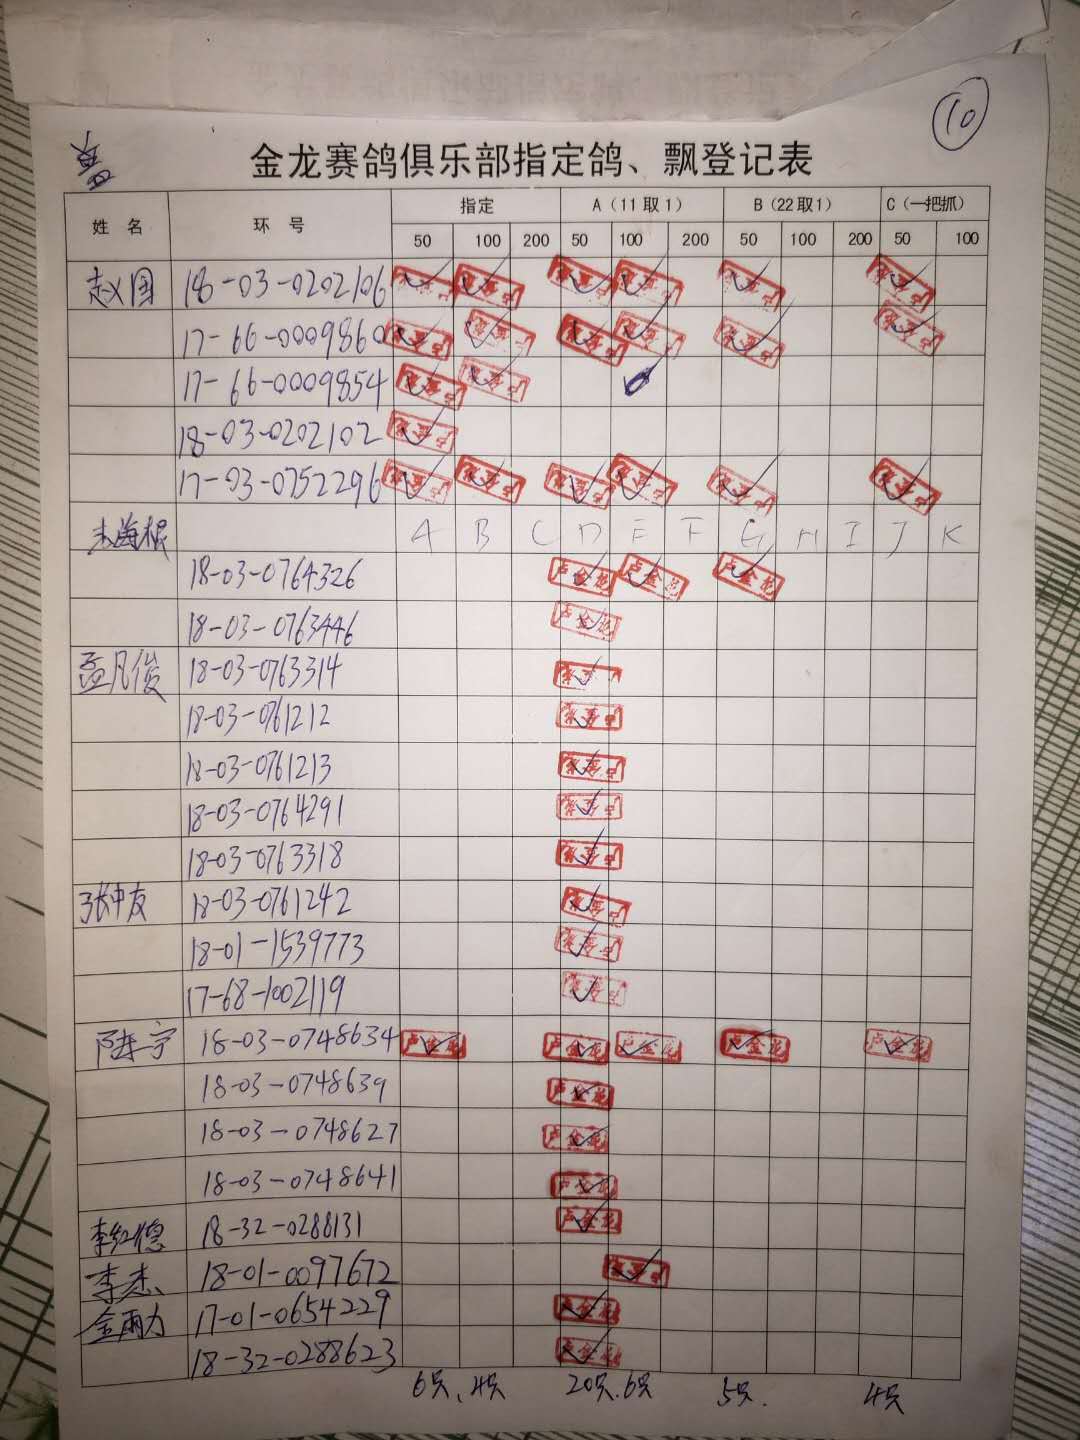 10
金龙赛鸽俱乐部指定鸽、飘登记表
姓 名 环 号 指定 A（11取1） B（22取1） C（一把抓）
50 100 200 50 100 200 50 100 200 50 100
赵义国 18-03-0202106
17-66-0009860
17-66-0009854
18-03-0202102
17-03-0752296
A B C D E F G H I J K
18-03-0764326 卢金龙 卢金龙 卢金龙
18-03-0763446 卢金龙
孟凡俊 18-03-0763314
18-03-0761212
18-03-0761213
18-03-0764291
18-03-0763318
张中友 18-03-0761242
18-01-1539773
17-68-1002119
陆宁 18-03-0748634 卢金龙 卢金龙 卢金龙 卢金龙 卢金龙
18-03-0748639 卢金龙
18-03-0748627 卢金龙
18-03-0748641 卢金龙
李红德 18-32-0288131 卢金龙
李杰 18-01-0097672
金雨力 17-01-0654229 卢金龙
18-32-0288623 卢金龙
6只、4只 20只、6只 5只. 4只